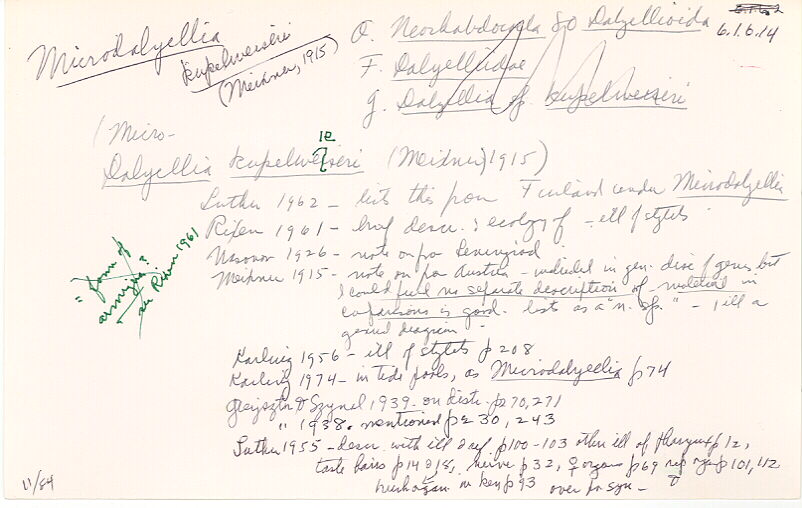 Microdalyellia
kupelweiseri
(Meixner, 1915)
O. Neorhabdocoela SO Dalyellioida
6.1.6.14
F. Dalyelliidae
g. Dalyellia kupelweiseri
(Micro-
ie
Dalyellia kupelweiseri (Meixner, 1915)
Luther 1962 - lists this from Finland under Microdalyellia
Rixen 1961 - brief descr. & ecology of - ill of stylets
Nasonov 1926 - note on fr Leningrad
Meixner 1915 - note on fr Austria - included in gen. disc of genus but
I could find no separate description of material in
comparisons is good. lists as a "n. sp." - , ill a
genital diagram -
"form of
armigera?
" in Rixen 1961
Karling 1956 - ill of stylets p 208
Karling 1974 - in tide pools, as Microdalyellia p 74
Gieysztor & Szynal 1939 - on distr. p 270, 271
" 1938. mentioned p 230, 243
Luther 1955 - descr. with ill & ref. p 100-103 other ill of pharynx p 12,
taste hairs p 14 & 18, nerve p 32, ♀ organs p 69 rep. p 101, 112
in key p 93 over for syn -
11/84